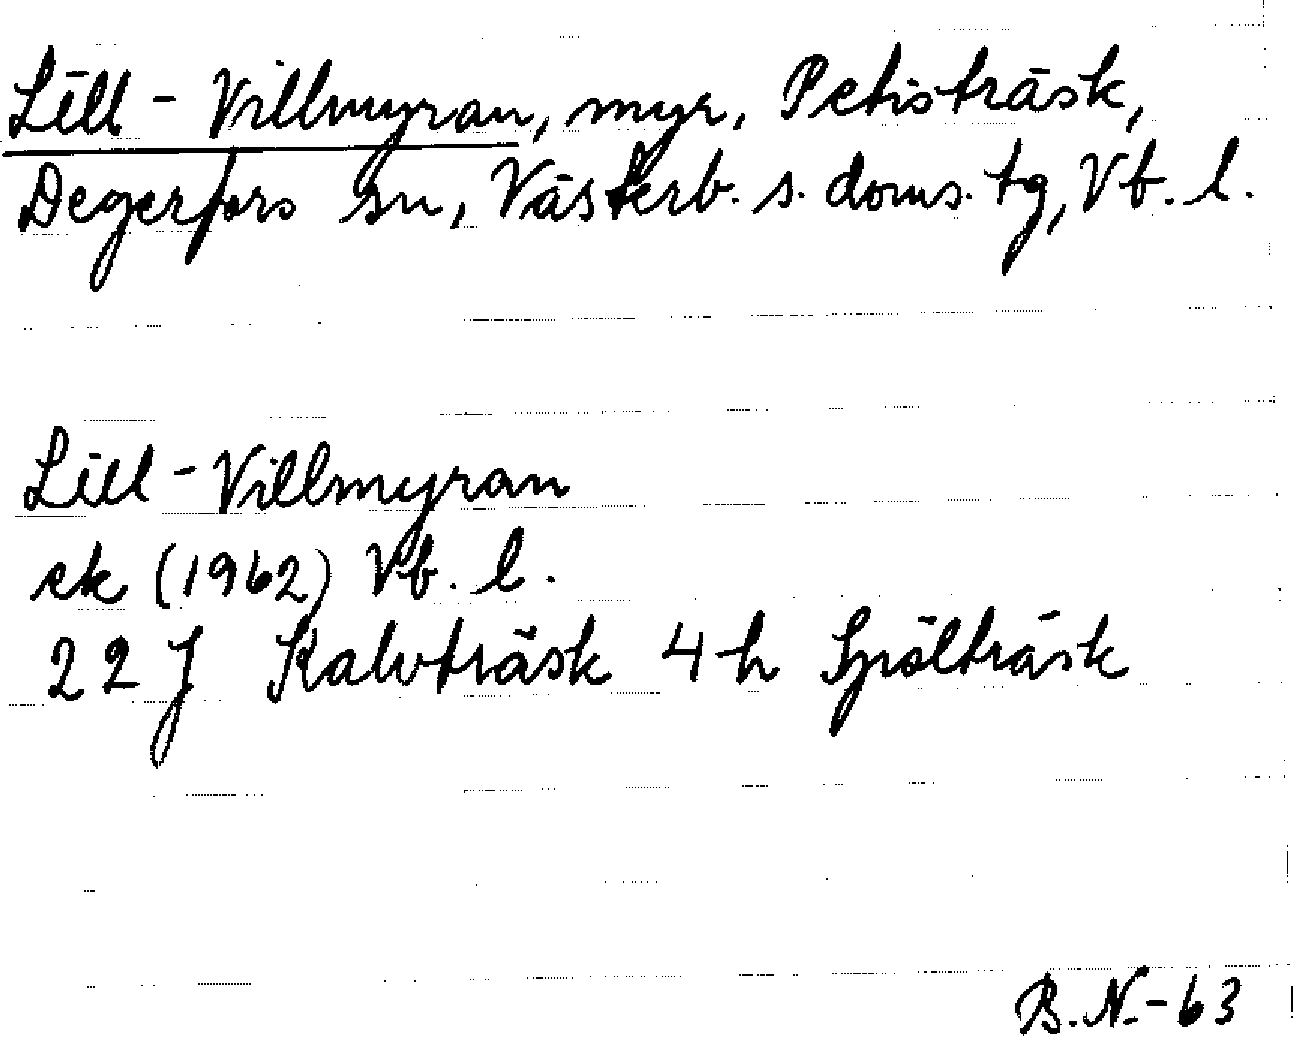 Lill-Villmyran, myr, Petisträsk,
Degerfors sn, Västerb. s. doms. tg, Vb. l.
Lill-Villmyran
ek (1962) Vb. l.
22 J Kalvträsk 4 h Spölträsk
B.N.-63